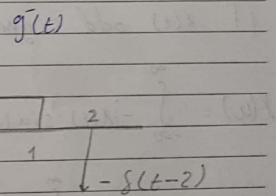 g(t)
2
1
-δ(t-2)